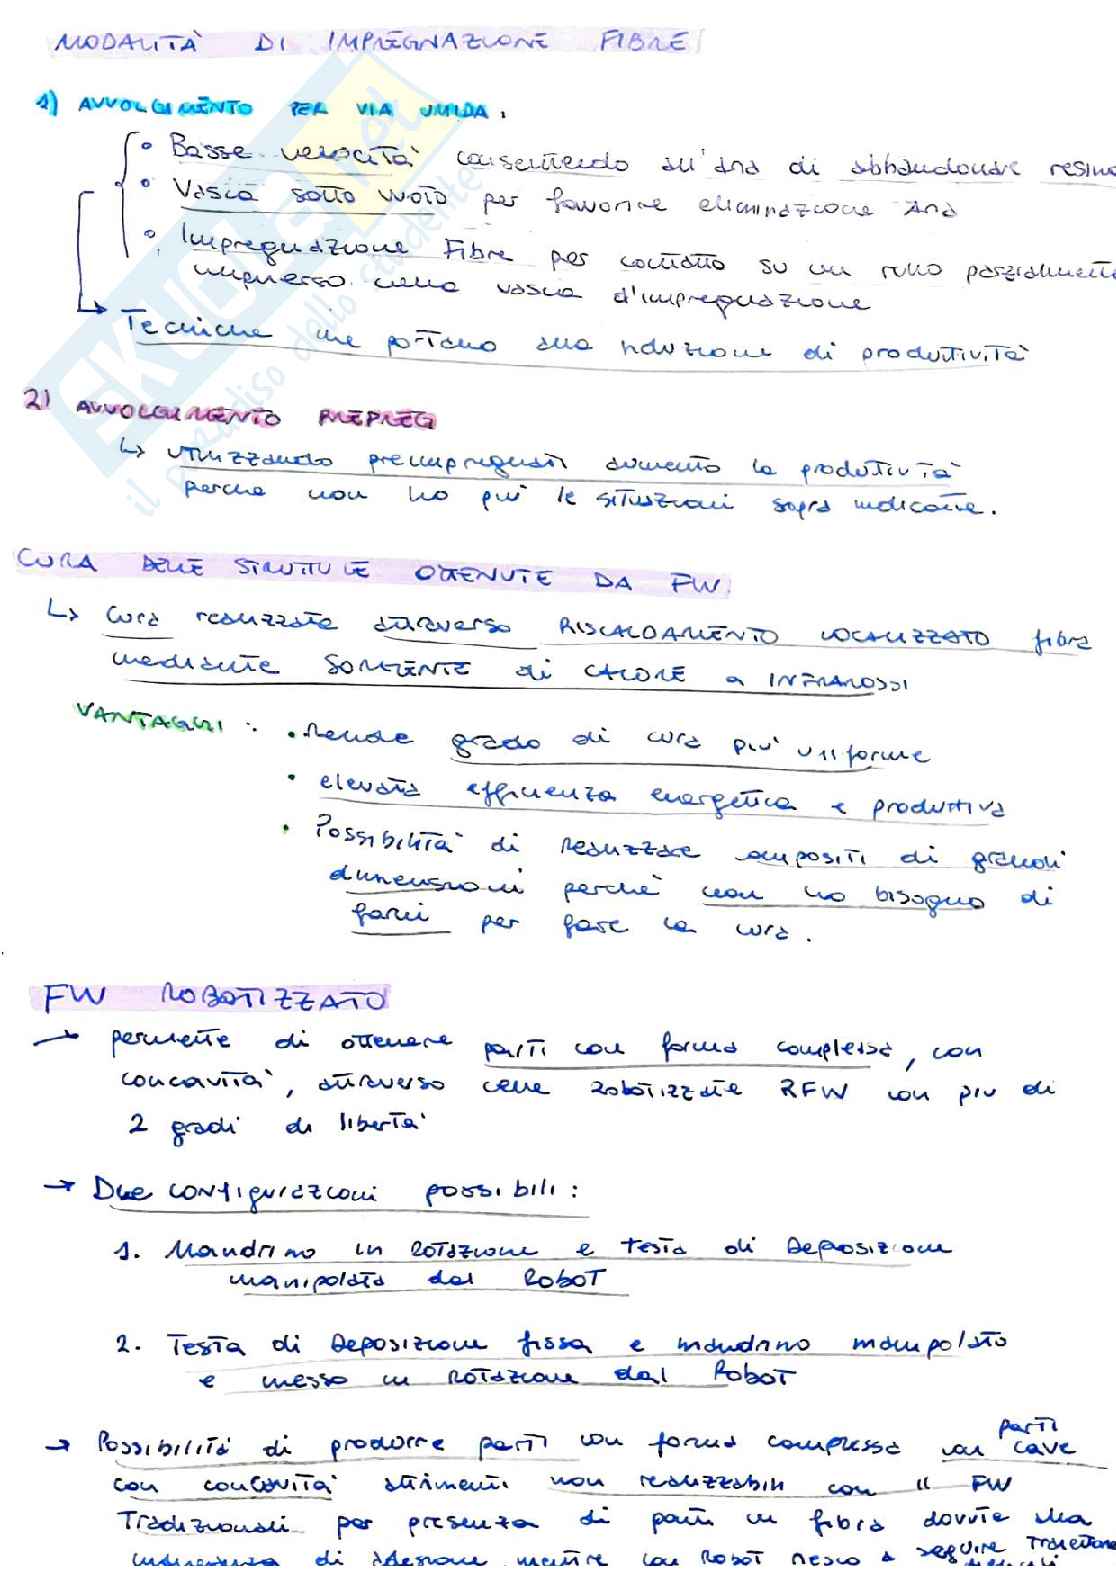 MODALITÀ DI IMPREGNAZIONE FIBRE
1) AVVOLGIMENTO PER VIA UMIDA.
° Basse velocità consentendo all'aria di abbandonare resina
° Vasca sotto vuoto per favorire eliminazione aria
° Impregnazione Fibre per contatto su un rullo parzialmente
immerso nella vasca d'impregnazione
Tecniche che portano una riduzione di produttività
2) AVVOLGIMENTO PREPREG
↳ utilizzando preimpregnati aumento la produttività
perche non ho più le situazioni sopra indicate.
CURA DELLE STRUTTURE OTTENUTE DA FW
↳ Cura realizzata attraverso RISCALDAMENTO LOCALIZZATO fibra
mediante SORGENTE di CALORE a INFRAROSSI
VANTAGGI : • Rende grado di cura più uniforme
• elevata efficienza energetica e produttiva
• Possibilità di realizzare compositi di grandi
dimensioni perchè non ho bisogno di
forni per fare la cura.
FW ROBOTIZZATO
→ permette di ottenere parti con forma complessa, con
concavità, attraverso celle robotizzate RFW con più di
2 gradi di libertà
→ Due configurazioni possibili :
1. Mandrino in rotazione e testa di deposizione
manipolata dal Robot
2. Testa di deposizione fissa e mandrino manipolato
e messo in rotazione dal Robot
→ Possibilità di produrre parti con forma complessa con parti cave
con concavità altrimenti non realizzabili con il FW
Tradizionali per presenza di ponti in fibra dovute alla
mancanza di adesione mentre con Robot riesco a seguire traiettorie
SKUOLA.net
il paradiso dello studente